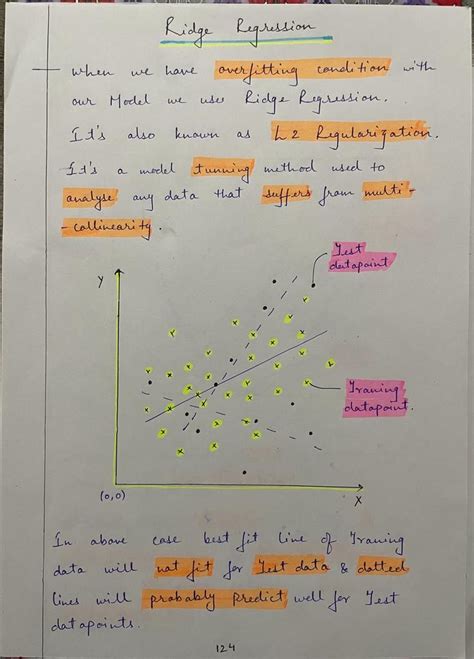 Ridge Regression
when we have overfitting condition with
our Model we use Ridge Regression.
It's also known as L2 Regularization.
It's a model tunning method used to
analyse any data that suffers from multi-
-collinearity.
Test
datapoint
Y
Traning
datapoint.
(0,0)
X
In above case best fit line of Traning
data will not fit for Test data & dotted
lines will probably predict well for Test
datapoints.
124